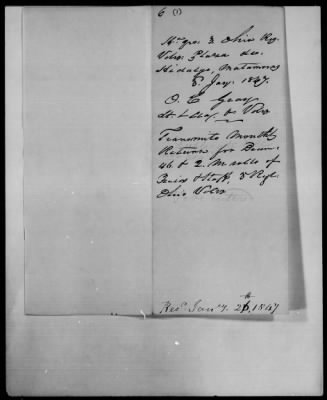 6 (1)
Hd Qrs 3 Ohio Reg.
Vols. Plaza de
Hidalgo, Matamoros
8 Jany. 1847.
O. C. Gray
Lt & Vols
Transmits Monthly
Returns for Decem.
46 & 2. Mr rolls of
& Staff, 3 Regt.
Ohio Vols
Recd Jany. 26th, 1847